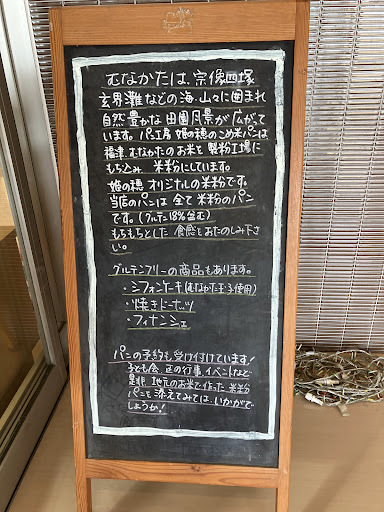 むなかたは、宗像四塚
玄界灘などの海・山々に囲まれ
自然豊かな田園風景が広がって
います。パン工房 姫の穂のこめ米パンは
福津、むなかたのお米を製粉工場に
もち込み 米粉にしています。
姫の穂オリジナルの米粉です。
当店のパンは全て米粉のパン
です。(グルテン18%含む)
もちもちとした食感をおたのしみ下さ
い。
グルテンフリーの商品もあります。
・シフォンケーキ(むなかた玉子使用)
・焼きドーナッツ
・フィナンシェ
パンの予約も受け付けています!
子ども会、正の行事、イベントなど
是非 地元のお米で作った米粉
パンを添えてみては、いかがで
しょうか!